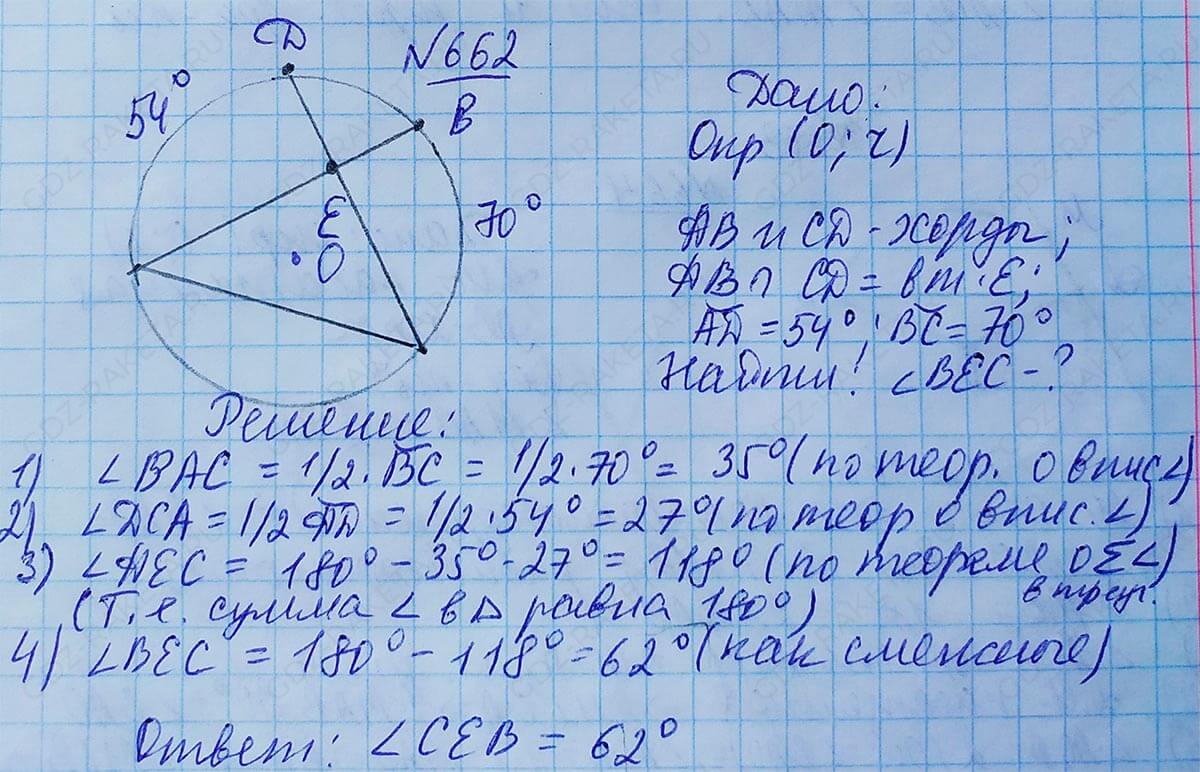 D
N662
54°
B
E
70°
O
Дано:
Окр (O; r)
AB и CD - хорды;
AB ∩ CD = в т. E;
AD = 54°; BC = 70°
Найти! ∠BEC - ?
Решение:
1) ∠BAC = 1/2 · BC = 1/2 · 70° = 35° (по теор. о впис ∠)
2) ∠DCA = 1/2 AD = 1/2 · 54° = 27° (по теор о впис. ∠)
3) ∠AEC = 180° - 35° - 27° = 118° (по теореме о Σ∠)
в треуг.
(Т.е. сумма ∠ в Δ равна 180°)
4) ∠BEC = 180° - 118° = 62° (как смежные)
Ответ: ∠CEB = 62°